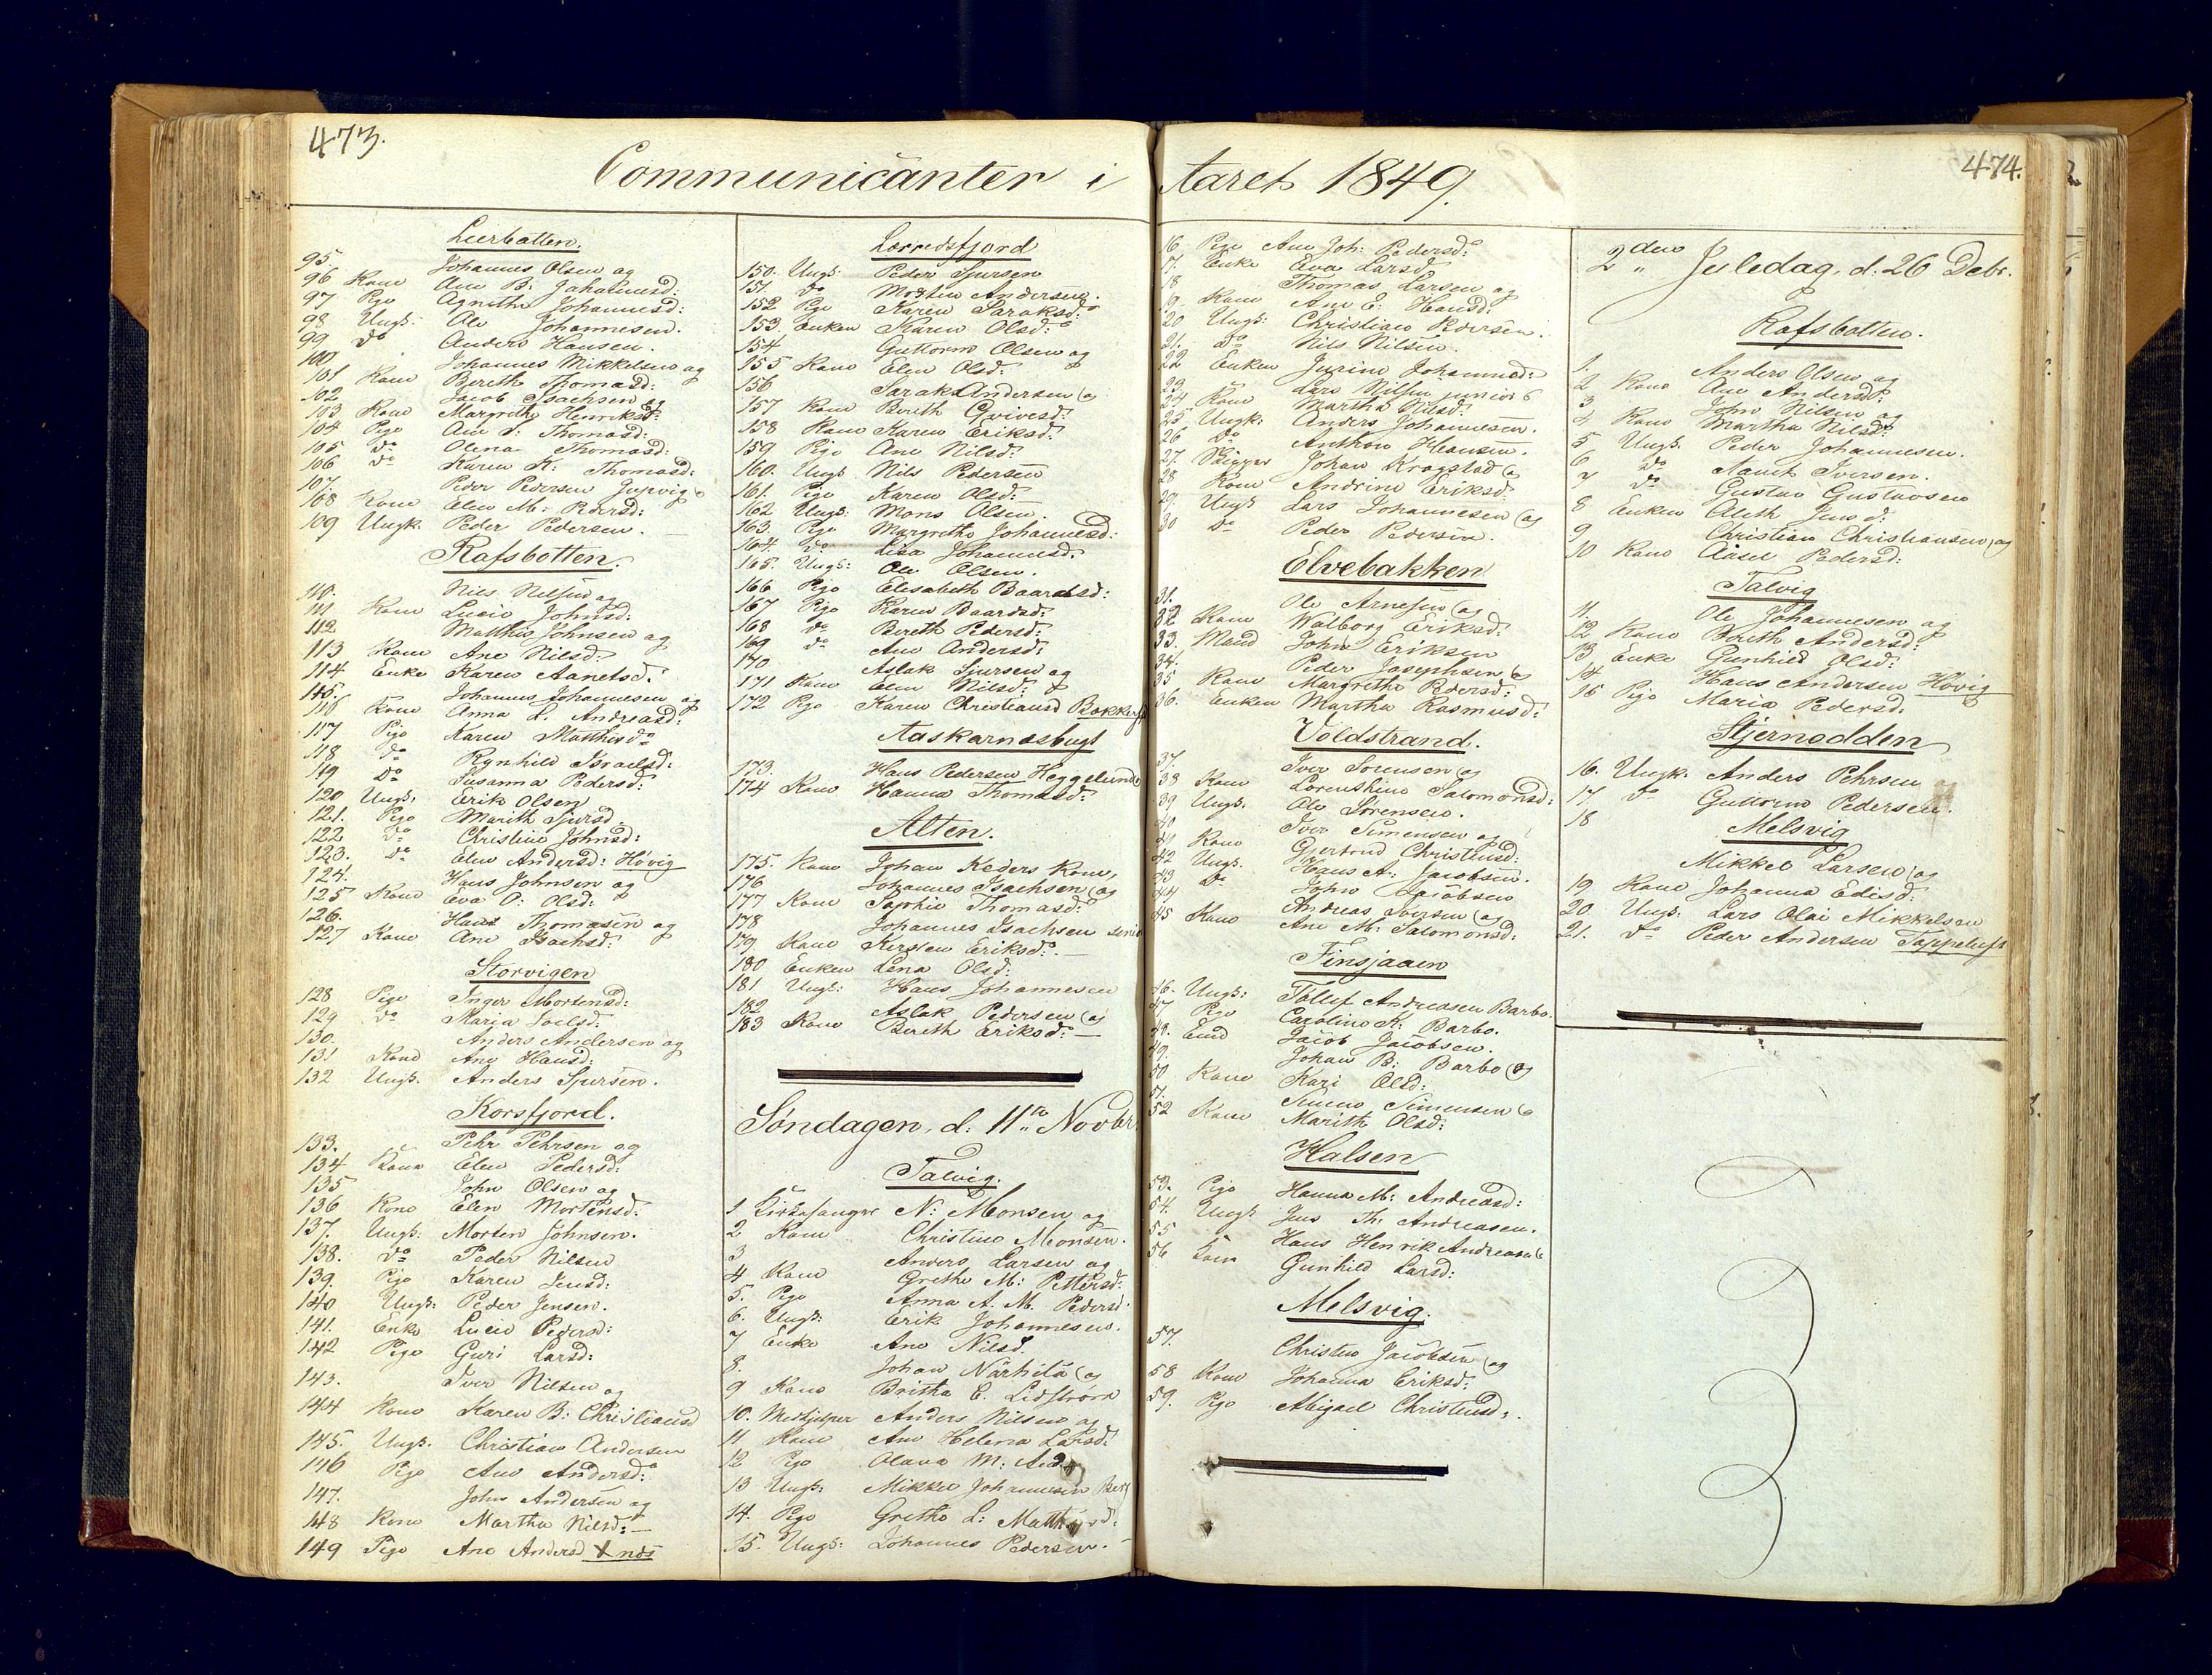 473.
Communicanter i Aaret 1849.
474.
Leerbotten.
95. Johannes Olsen og
96 Kone Ane B: Johannesd:
97 Pige Agnethe Johannesd:
98 Ungk: Ole Johannesen.
99 do Anders Hansen.
100 Johannes Mikkelsen og
101 Kone Bereth Thomasd:
102 Jacob Isachsen og
103 Kone Margrethe Henriksd:
104 Pige Ane S: Thomasd:
105 do Olena Thomasd:
106 do Karen K: Thomasd:
107. Peder Pedersen
108 Kone Elen M: Pedersd:
109 Ungk. Peder Pedersen.
Rafsbotten.
110. Nils Nilsen og
111. Kone Lucie Johnsd:
112 Matthis Johnsen og
113 Kone Ane Nilsd:
114 Enke Karen Aanetsd:
115. Johannes Johannesen og
116 Kone Anna L. Andreasd:
117 Pige Karen Matthisd:
118 do Rynhild Israelsd:
119 do Susanna Pedersd:
120 Ungk. Erik Olsen
121. Pige Marith Sjursd.
122 do Christine Johnsd:
123. do Elen Andersd: Høvig
124. Hans Johnsen og
125 Kone Eva O: Olsd:
126. Hans Thomasen og
127 Kone Ane Isachsd:
Storvigen
128 Pige Inger Mortensd:
129 do Marja Joelsd:
130. Anders Andersen og
131 Kone Ane Hansd:
132 Ungk. Anders Sjursen.
Korsfjord.
133. Pehr Pehrsen og
134 Kone Elen Pedersd:
135 John Olsen og
136 Kone Elen Mortensd:
137. Ungk: Morten Johnsen.
138. do Peder Nilsen
139. Pige Karen Jensd:
140 Ungk: Peder Jensen.
141. Enke Lucie Pedersd:
142 Pige Guri Larsd:
143. Iver Nilsen og
144 Kone Karen B: Christiansd
145. Ungk. Christian Andersen
146 Pige Ane Andersd:
147. John Andersen og
148 Kone Martha Nilsd: —
149 Pige Ane Andersd
Lærredsfjord
150. Ungk: Peder Sjursen
151. do Morten Andersen.
152 Pige Karen Saraksd:
153. Enken Karen Olsd:
154 Guttorm Olsen og
155 Kone Elen Olsd:
156 Sarak Andersen og
157 Kone Bereth Qvivesd:
158 Kone Karen Eriksd:
159 Pige Ane Nilsd:
160. Ungk Nils Pedersen
161. Pige Karen Olsd:
162 Ungk: Mons Olsen.
163. Pige Margrethe Johannesd:
164. do Lisa Johannesd:
165. Ungk: Ole Olsen.
166 Pige Elisabeth Baardsd:
167 Pige Karen Baardsd:
168 do Bereth Pedersd:
169 do Ane Andersd:
170 Aslak Sjursen og
171 Kone Elen Nilsd:
172 Pige Karen Christiansd
Aaskarnæsbugt
173. Hans Pedersen Heggelund
174 Kone Hanna Thomasd:
Alten.
175. Kone Johan Keders Kone,
176 Johannes Isachsen og
177 Kone Sophie Thomasd:
178 Johannes Isachsen senior
179. Kone Kirsten Eriksd: —
180 Enken Lena Olsd:
181 Ungk: Hans Johannesen
182 Aslak Pedersen og
183 Kone Bereth Eriksd: —
Søndagen, d: 11te Novbr.
Talvig.
1 Kirkesanger N: Monsen og
2 Kone Christine Monsen.
3 Anders Larsen og
4 Kone Grethe M: Pettersd:
5. Pige Anna A. M. Pedersd.
6. Ungk: Erik Johannesen.
7 Enke Ane Nilsd.
8. Johan Närhilä og
9 Kone Britha E. Lidström
10. Medhjelper Anders Nilsen og
11 Kone Ane Helena Larsd:
12 Pige Olava M:
13 Ungk: Mikkel Johannesen Berg
14. Pige Grethe L:
15. Ungk: Johannes Pedersen. —
16 Pige Ane Joh: Pedersd:
17. Enke Eva Larsd
18 Thomas Larsen og
19. Kone Ane E. Hansd:
20 Ungk: Christian Pedersen.
21. do Nils Nilsen.
22 Enken Jurine Johannesd:
23. Lars Nilsen junior
24 Kone Martha Nilsd:
25 Ungk: Anders Johannesen.
26 do Anthon Hansen.
27. Skipper Johan Kragstad og
28 Kone Andrine Eriksd:
29 Ungk Lars Johannesen og
30 do Peder Pedersen.
Elvebakken
31. Ole Arnesen og
32 Kone Walborg Eriksd:
33. Mand John Eriksen
34. Peder Josephsen og
35 Kone Margrethe Pedersd:
36. Enken Martha Rasmusd:
Voldstrand.
37. Iver Sørensen og
38 Kone Lorenthine Salomonsd:
39 Ungk. Ole Sørensen.
40 Iver Simensen og
41 Kone Gjertrud Christensd:
42 Ungk. Hans A: Jacobsen.
43 do John Jacobsen
44 Andreas Iversen og
45 Kone Ane M: Salomonsd:
Finsjaaen
46. Ungk: Tollef Andreasen Barbo.
47 Pige Caroline K: Barbo.
48. Jacob Jacobsen.
49. Johan B: Barbo og
50 Kone Kari Olsd:
51. Simensen
52 Kone Marith Olsd:
Halsen
53. Pige Hanna M: Andreasd:
54. Ungk Jens Th: Andreasen.
55 Hans Henrik Andreasen
56 Kone Gunhild Larsd:
Melsvig.
57. Christen Jacobsen og
58 Kone Johanna Eriksd:
59. Pige Abigael Christensd:
2den Juledag, d: 26 Decbr.
Rafsbotten.
1. Anders Olsen og
2 Kone Ane Andersd:
3 John Nilsen og
4 Kone Martha Nilsd:
5 Ungk: Peder Johannesen.
6 do Iversen.
7 do Gustav Gustavsen
8 Enken Aleth Jensd:
9 Christian Christiansen og
10 Kone Aasel Pedersd:
Talvig
11. Ole Johannesen og
12 Kone Berith Andersd:
13 Enke Gunhild Olsd:
14 Hans Andersen Høvig
15 Pige Maria Pedersd:
Stjernodden
16. Ungk. Anders Pehrsen
17. do Guttorm Pedersen.
18
Melsvig
Mikkel Larsen og
19 Kone Johanna Edisd:
20. Ungk: Lars Olai Mikkelsen
21. do Peder Andersen